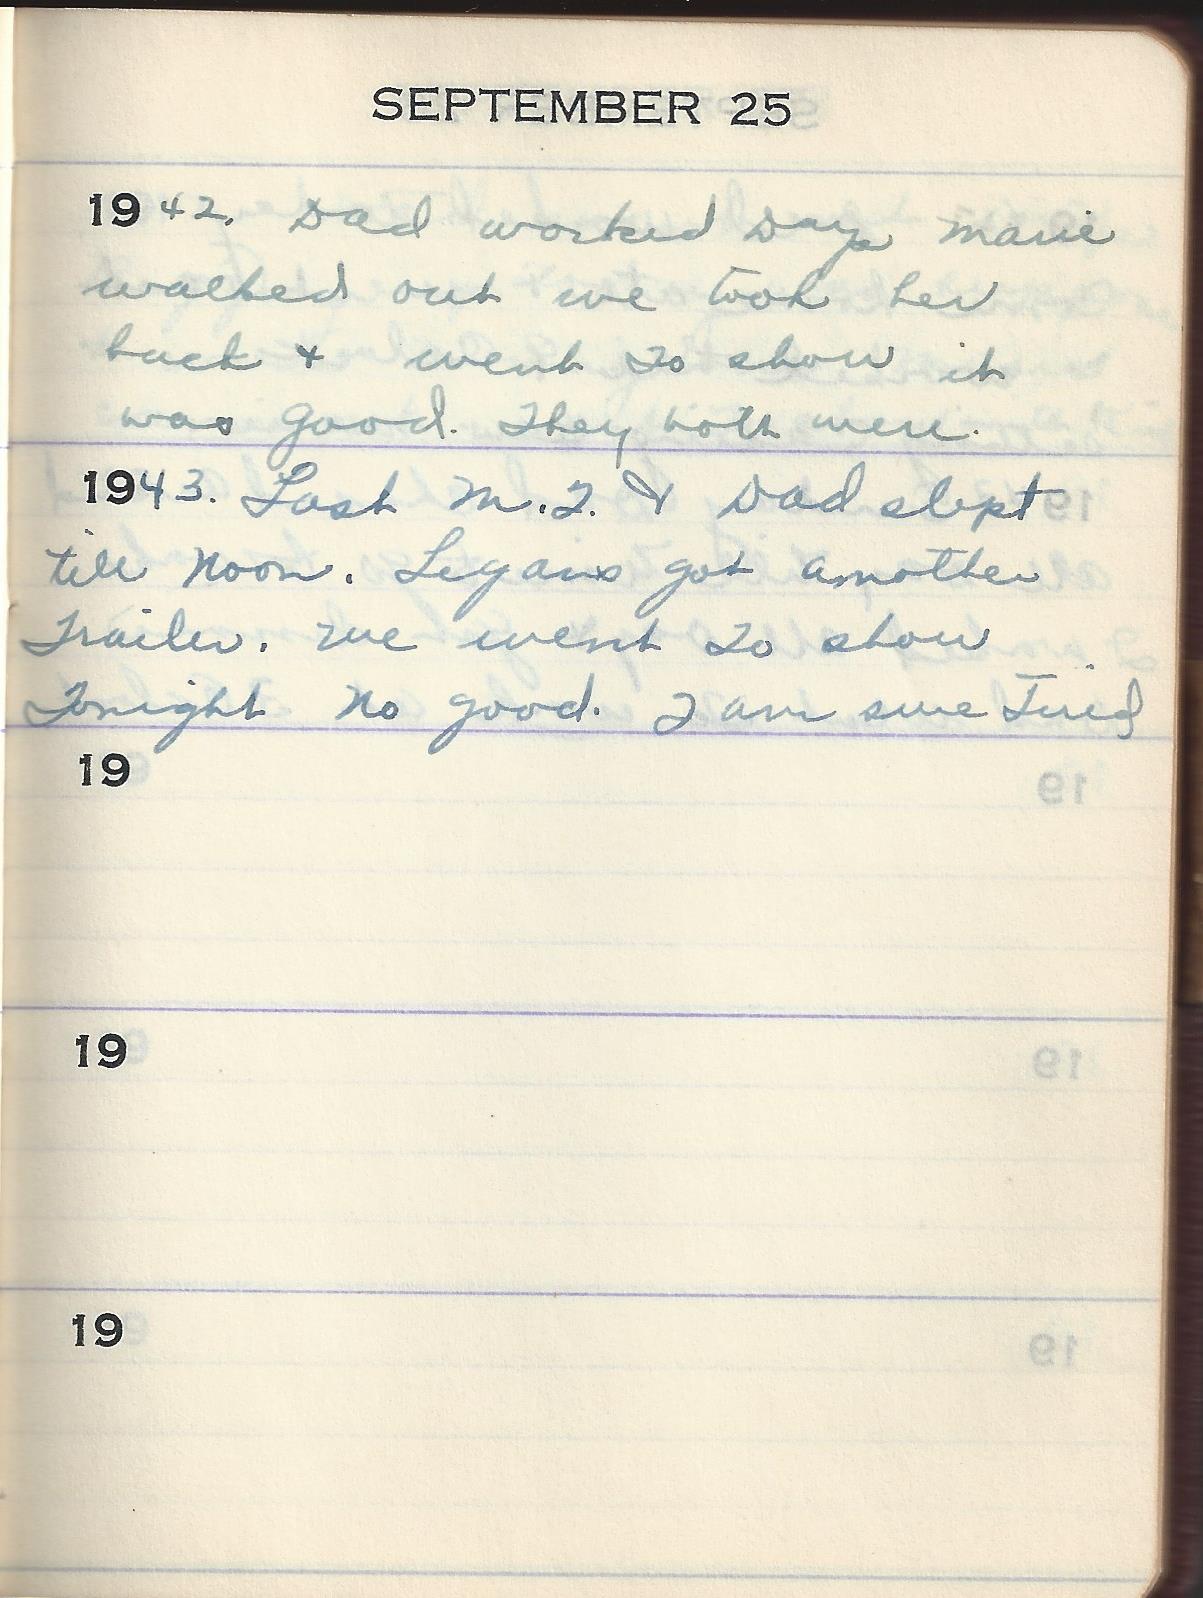 SEPTEMBER 25
1942. Dad worked Days Marie
walked out we took her
back & went to show it
was good. They both were.
1943. Last M.T. & Dad slept
till Noon. Legans got another
Trailer. We went to show
Tonight No good. I am sure Tired
19
19
19